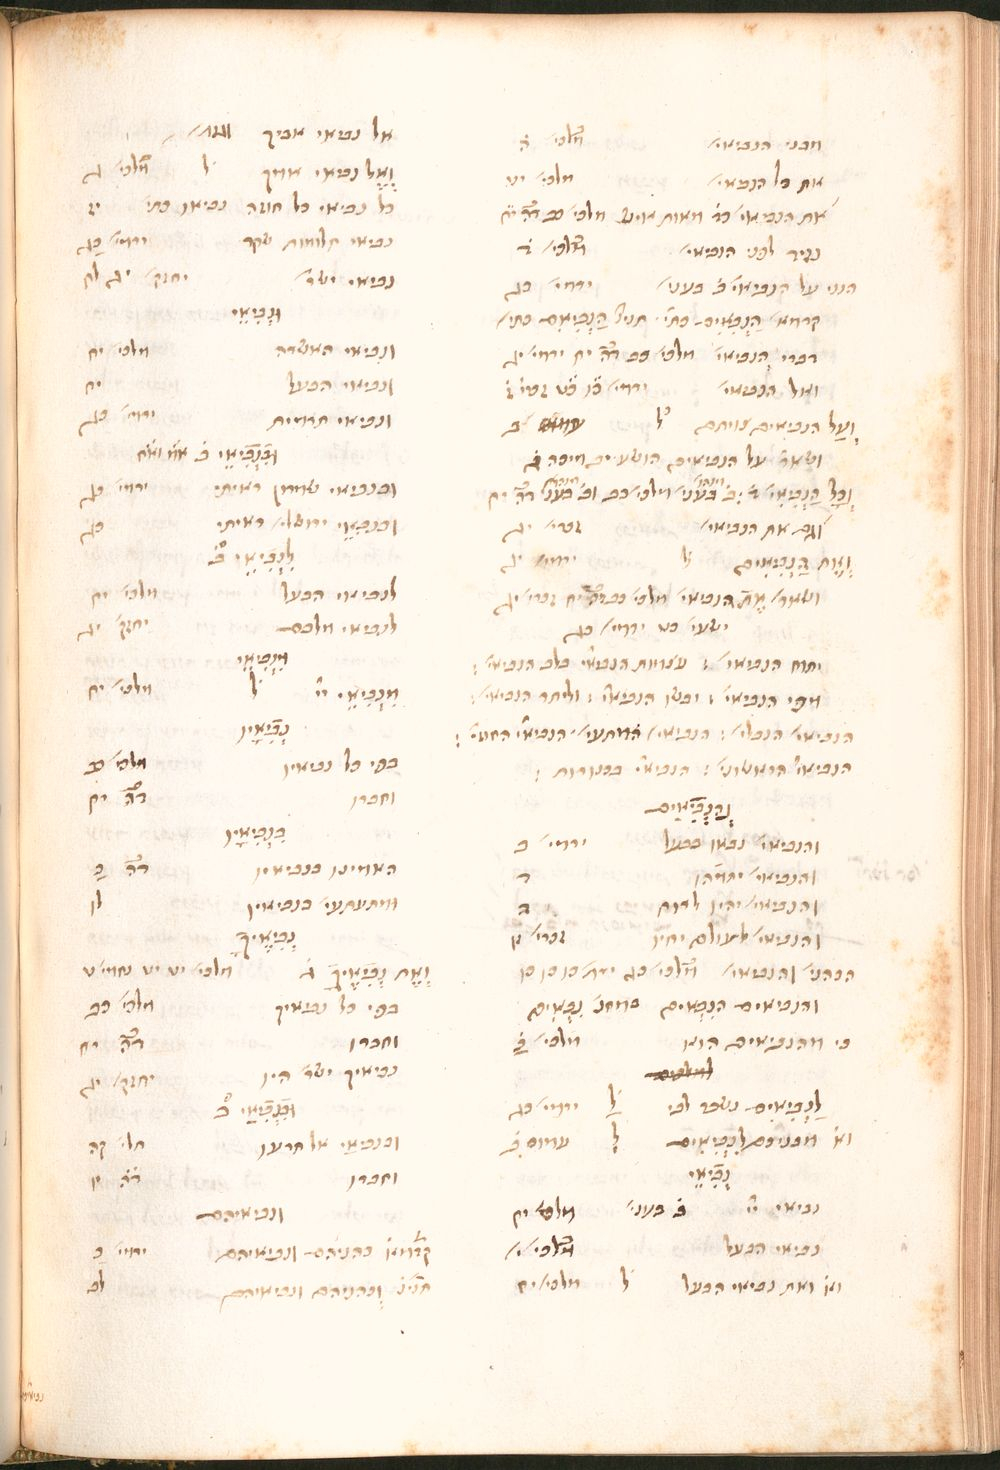 מבני הנביאי׳ מלכי׳ ה
את כל הנביאי׳ מלכי׳ יט
את הנביאי׳ כד׳ מאות איש מלכי׳ כב דה יח
נגיד לפני הנביאי׳ מלכי׳
הנני על הנביאי׳ ג בעני׳ ירמי׳ כג
קדמא׳ הנביאים כתי׳ תני׳ הנביאים כתי׳
דברי הנביאי׳ מלכי׳ כב דה יח ירמי׳ יג
ואל הנביאי׳ ירמי׳ כו כט זכרי׳ ז
ועל הנביאים צויתם ל עמוס ב
ושאר׳ על הנביאים הושע יב מיכה ג
וכל הנביאי׳ מלכי׳ כב דה יח
וגם את הנביאי׳ זכרי׳ יג
ואת הנביאים ל ירמי׳ יג
ושאר׳ את הנביאי׳ מלכי׳ כב דה יח זכרי׳ יג
ישעי׳ כט ירמי׳ כג
יתוח הנביאי׳ : עצמות הנביאי׳ כלב הנביאי׳ :
מפי הנביאי׳ : ובשו הנביאי׳ : וליתר הנביאי׳ :
הנביאי׳ הנבלי׳ : הנביאי׳ המתעי׳ הנביאי׳
הנביאי׳ הראשוני׳ : הנביאי׳ בכנורות :
והנביאים
והנביאי׳ נבאו בבעל ירמי׳ ב
והנביאי׳ יתמהו ד
והנביאי׳ יהיו לרוח ה
והנביאי׳ לעולם יחיו זכרי׳
הכהני׳ והנביאי׳ מלכי׳ כג ירמי׳ כו כו כו
והנביאים הנבאים נבאים
כי מהנביאים הוא מלכי׳
לנביאים נשבר לבי ל ירמי׳ כג
וא׳ מבניכם לנביאים ל עמוס ב
נביאי
נביאי יי׳ ג בעני׳ מלכי׳ יח
נביאי הבעל מלכי׳ י
וא׳ ואת נביאי הבעל ל מלכי׳ יח
אל נביאי אביך
ואל נביאי אמך ל מלכי׳ ג
כל נביאי כל חוזה נביאו כתי׳ יז
נביאי חלומות שקר ירמי׳ כג
נביאי ישר׳ יחזק׳ יג לח
ונביאי
ונביאי האשרה מלכי׳ יח
ונביאי הבעל יח
ונביאי תרמית ירמי׳ כג
ובנביאי ב
ובנביאי שמרון ראיתי ירמי׳ כג
ובנביאי ירושל׳ ראיתי כג
לנביאי ב
לנביאי הבעל מלכי׳ יח
לנביאי מלבם יחזק׳ יג
מנביאי
מנביאי יי׳ ל מלכי׳ יח
נביאיו
בפי כל נביאיו מלכי׳ כב
וחברו דה יח
בנביאיו
האמינו בנביאיו דה כ
ומתעתעי׳ בנביאיו לו
נביאיך
ואת נביאיך ג מלכי׳ יט יט נחמי׳ ט
בפי כל נביאיך מלכי׳ כב
וחברו דה יח
נביאיך ישר׳ היו יחזק׳ יג
ובנביאי ב
ובנביאי אל תרעו תלי׳ קה
וחברו דה
ונביאיהם
קדמא׳ כהניהם ונביאיהם ירמי׳ ב
תני׳ וכהניהם ונביאיהם לב